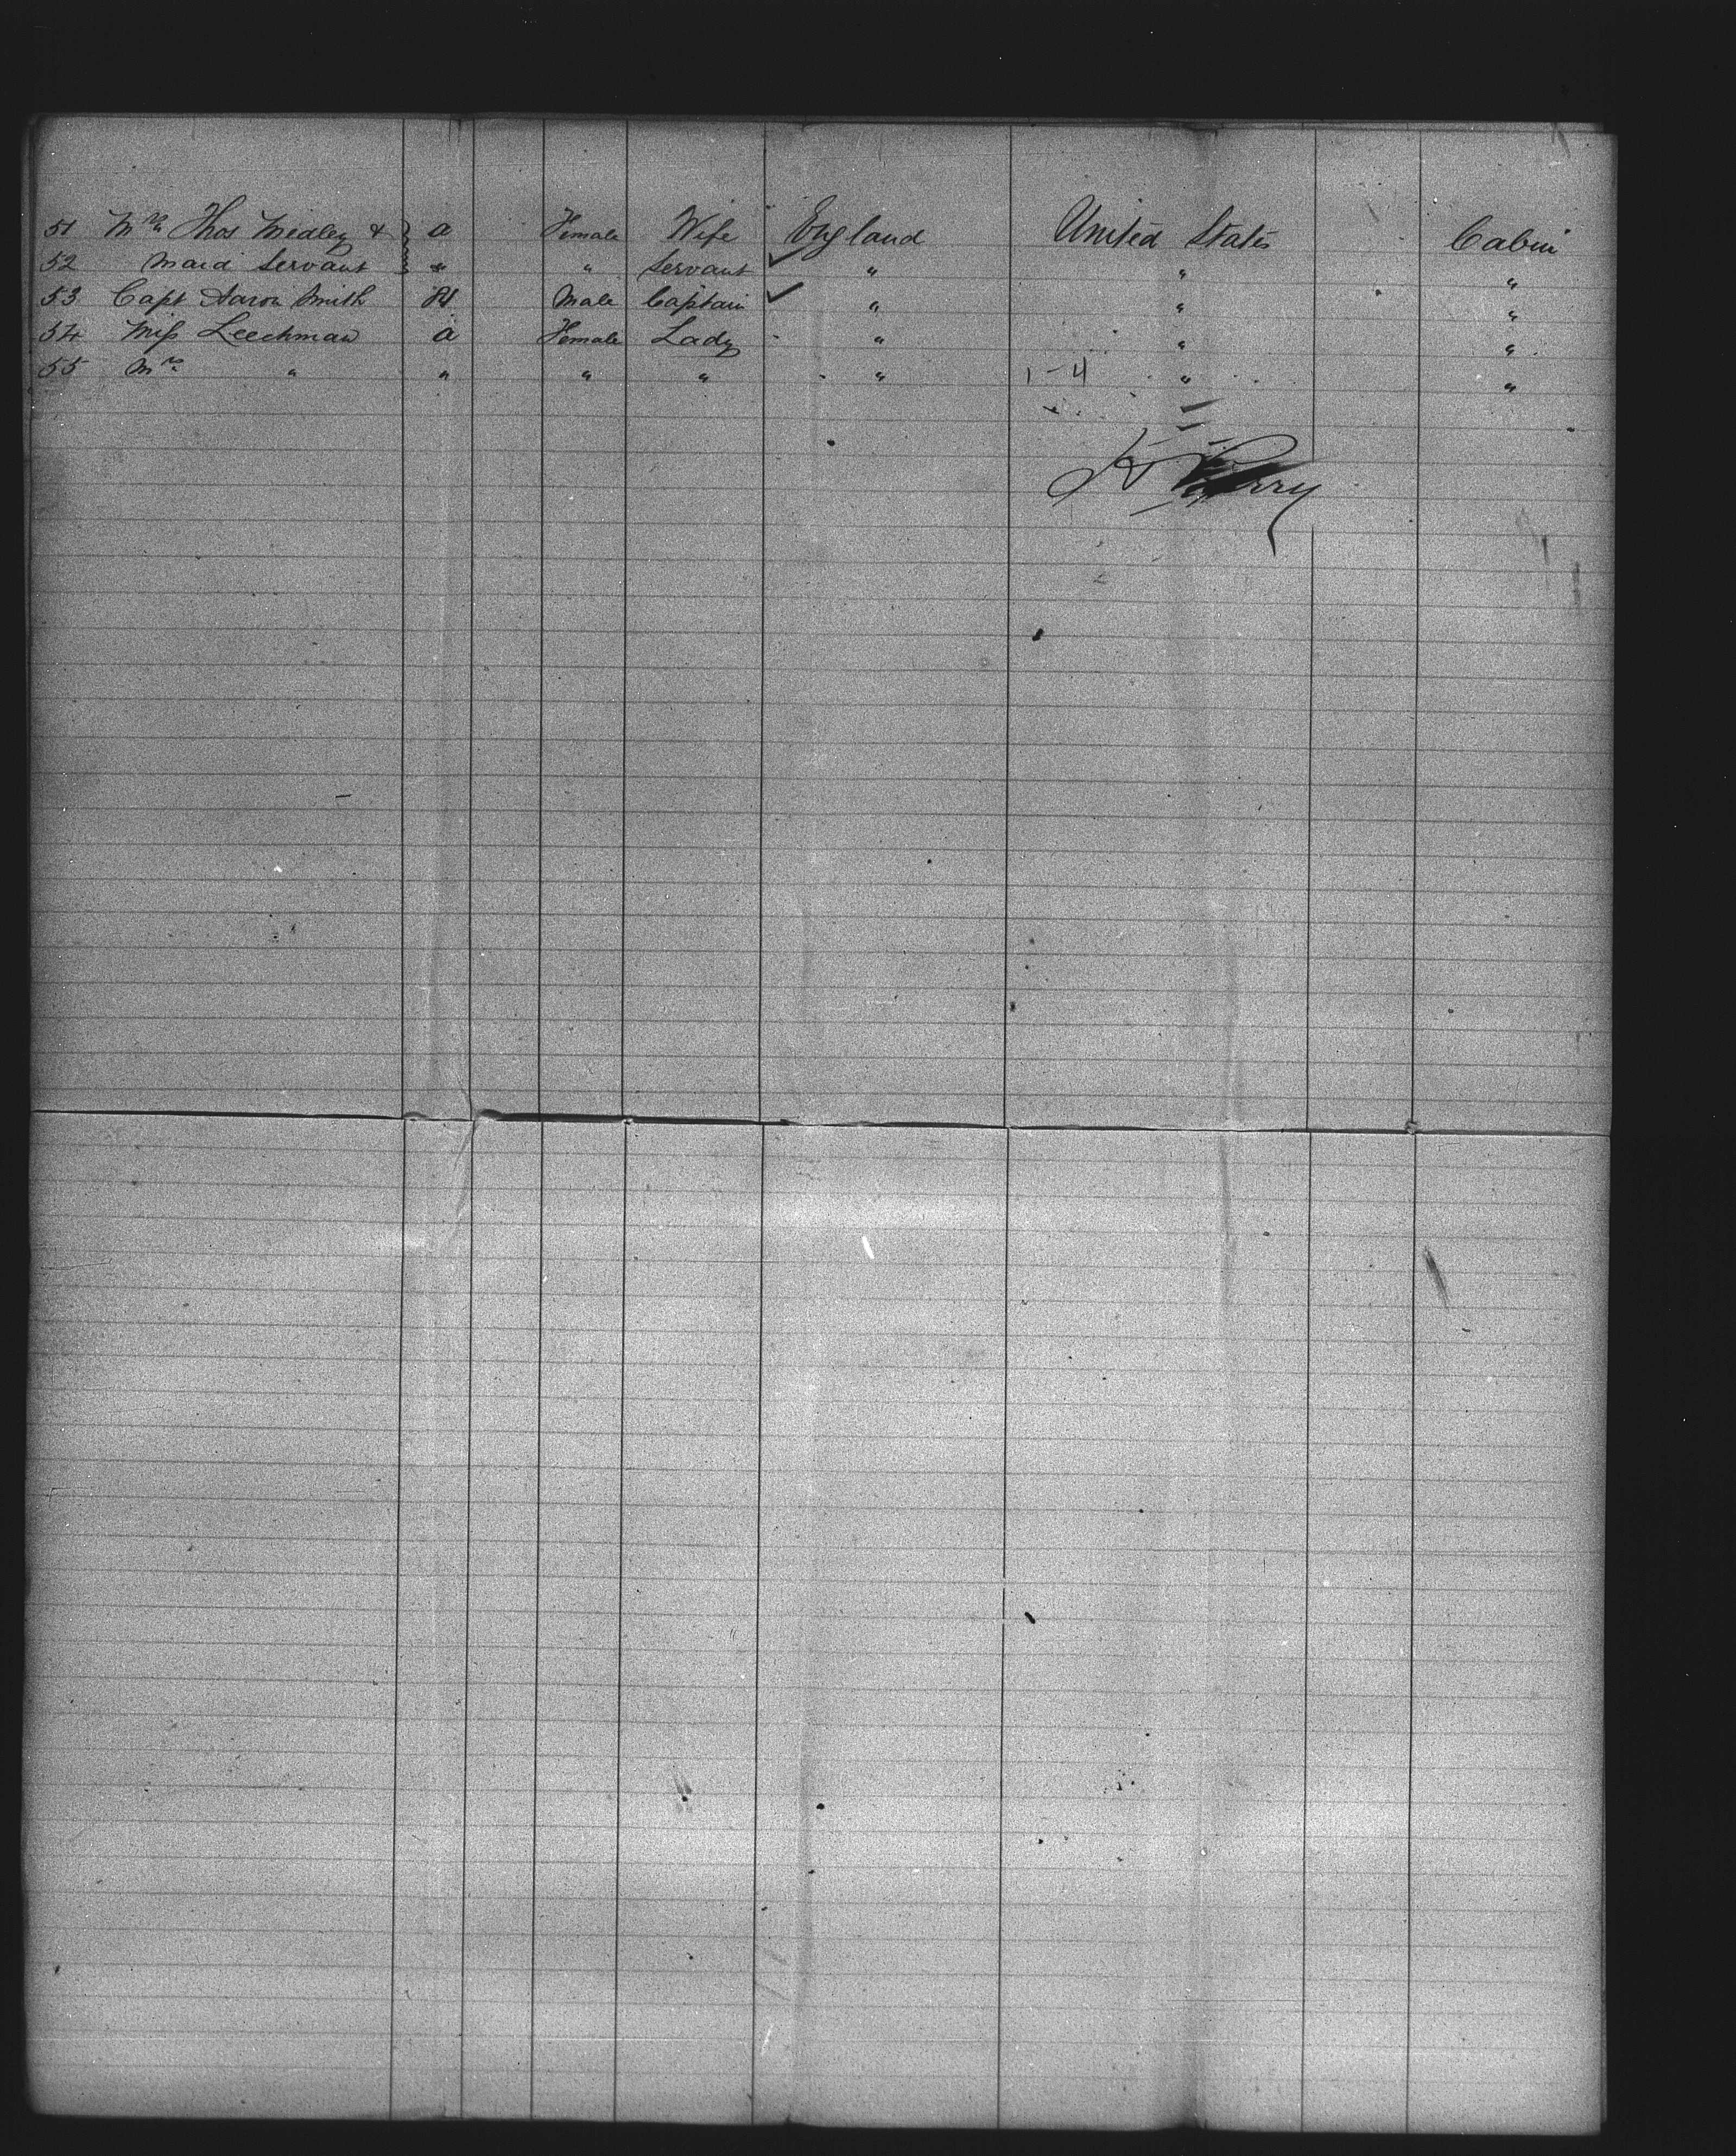 51 Mrs Thos Medley & a Female Wife England United States Cabin
52 Maid Servant " " Servant ✓ " " "
53 Capt Aaron Smith Male Captain ✓ " " "
54 Miss Leechman a Female Lady " " "
55 Mrs " " " " " 1-4 " "